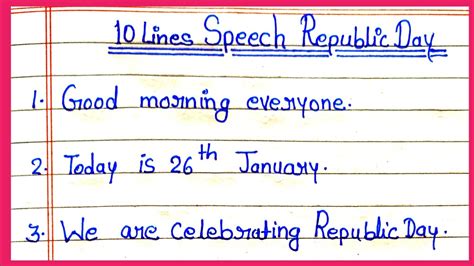 10 Lines Speech Republic Day
1. Good morning everyone.
2. Today is 26th January.
3. We are celebrating Republic Day.